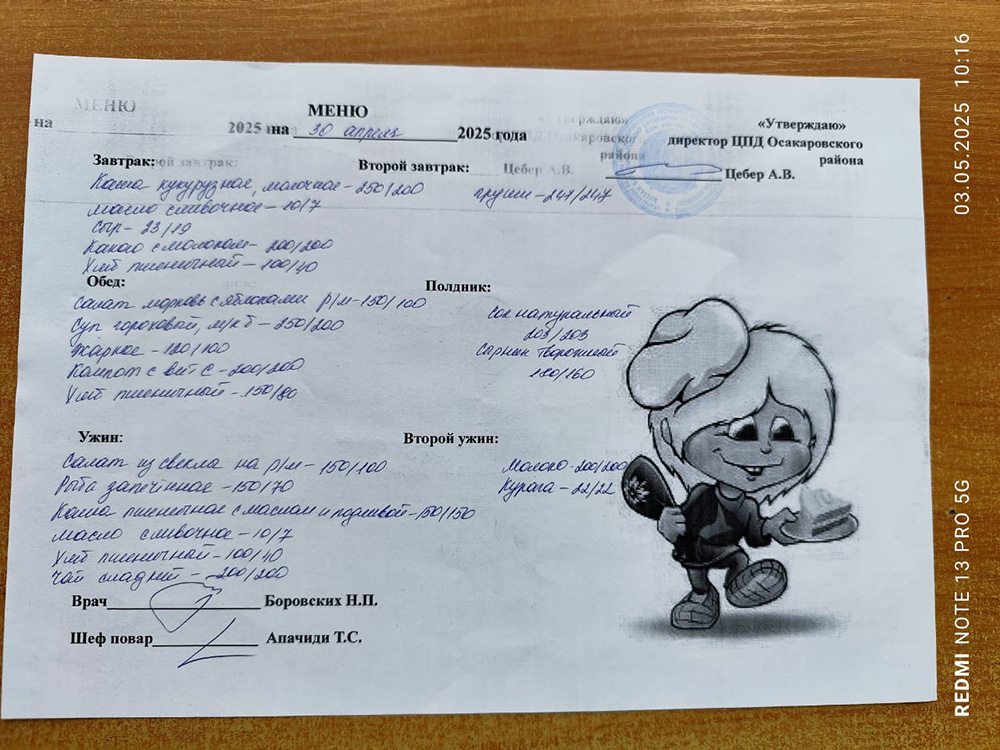 МЕНЮ
МЕНЮ
на
2025
на 30 апрель 2025 года
«Утверждаю»
директор ЦПД Осакаровского
района
Цебер А.В.
Завтрак:
Второй завтрак:
Цебер А.В.
Каша кукурузная, молочное - 250/200
груши - 247/247
масло сливочное - 10/7
Сыр - 23/19
Какао с молоком - 200/200
Хлеб пшеничный - 100/40
Обед:
Полдник:
Салат морковь с яблоками р/м - 150/100
Сок натуральный
203/203
Суп гороховый, м/к б - 250/200
Жаркое - 120/100
творожный
180/160
Компот с вит С - 200/200
Хлеб пшеничный - 150/80
Ужин:
Второй ужин:
Салат из свекла на р/м - 150/100
Молоко - 200/200
Рыба запечённое - 150/70
Курага - 22/22
Каша пшеничная с маслом и подливой - 150/150
масло сливочное - 10/7
Хлеб пшеничный - 100/40
Чай сладкий - 200/200
Врач Боровских Н.П.
Шеф повар Апачиди Т.С.
03.05.2025 10:16
REDMI NOTE 13 PRO 5G